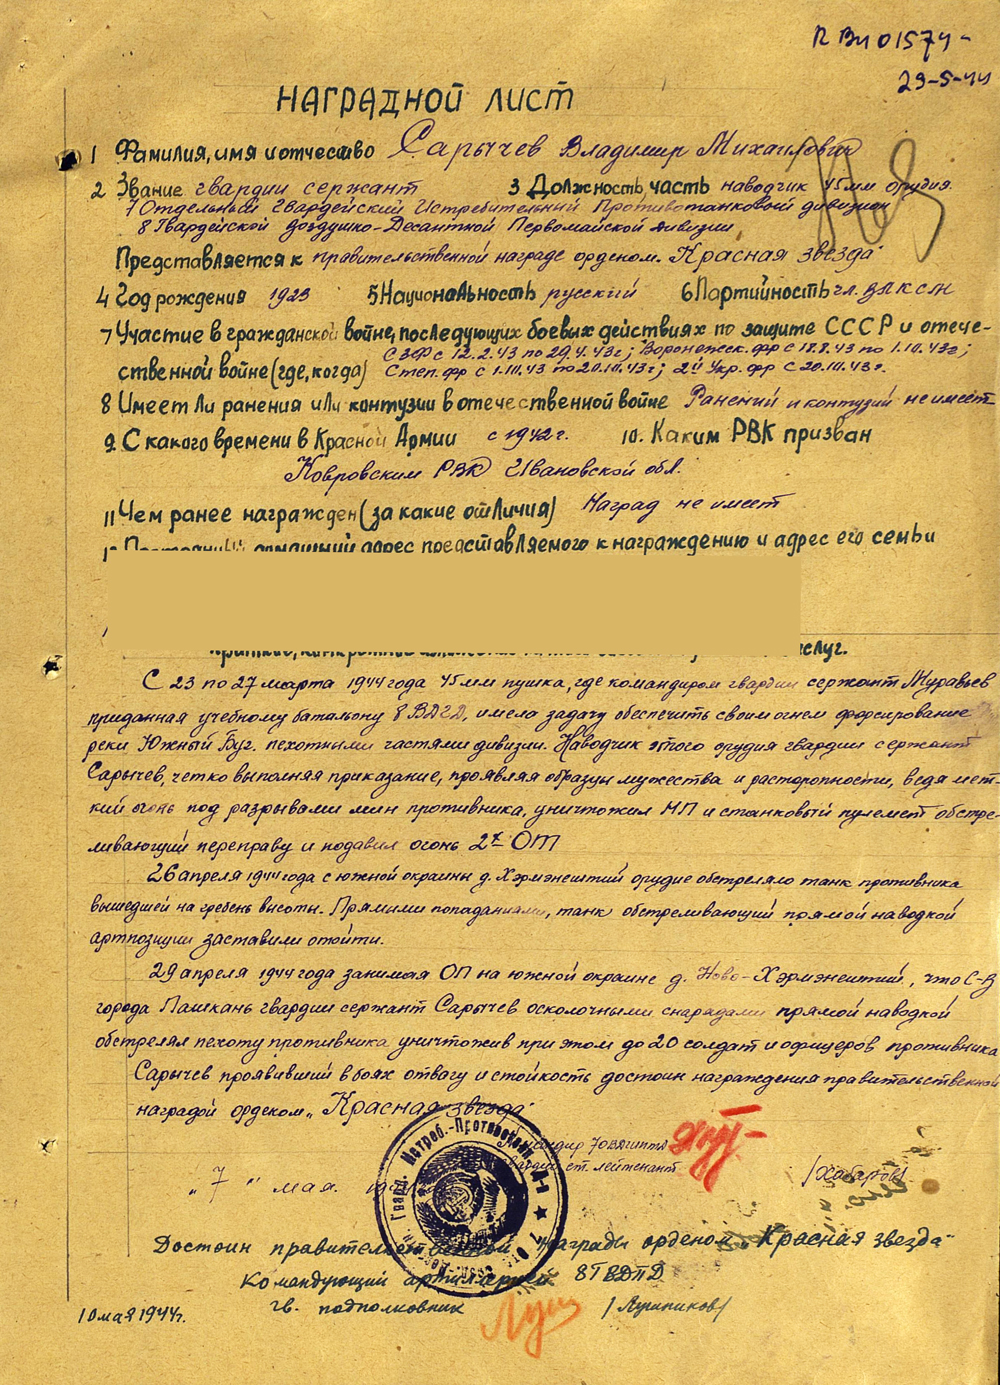 П ВИ 01574
29-5-44
НАГРАДНОЙ ЛИСТ
1 Фамилия, имя и отчество Сарычев Владимир Михайлович
2 Звание гвардии сержант 3 Должность, часть наводчик 45мм орудия.
7 Отдельный Гвардейский Истребительный Противотанковый дивизион
8 Гвардейской Воздушно-Десантной Первомайской дивизии
Представляется к правительственной награде орденом „Красная звезда"
4 Год рождения 1923 5 Национальность русский 6 Партийность чл. ВЛКСМ
7 Участие в гражданской войне, последующих боевых действиях по защите СССР и отече-
СЗФ с 12.2.43 по 29.4.43г; Воронежск. фр с 18.8.43 по 1.10.43г;
ственной войне (где, когда) Степ. фр с 1.10.43 по 20.10.43г; 2й Укр. фр с 20.10.43г.
8 Имеет ли ранения или контузии в отечественной войне Ранений и контузий не имеет
9. С какого времени в Красной Армии с 1942г. 10. Каким РВК призван
Ковровским РВК Ивановской обл.
11 Чем ранее награжден (за какие отличия) Наград не имеет
домашний адрес представляемого к награждению и адрес его семьи
С 23 по 27 марта 1944 года 45мм пушка, где командиром гвардии сержант Муравьев
приданная учебному батальону 8 ВДГД, имела задачу обеспечить своим огнем форсирование
реки Южный Буг. пехотными частями дивизии. Наводчик этого орудия гвардии сержант
Сарычев, четко выполняя приказание, проявляя образцы мужества и расторопности, ведя мет-
кий огонь под разрывами мин противника, уничтожил НП и станковый пулемет обстре-
ливающий переправу и подавил огонь 2х ОТ
26 апреля 1944 года с южной окраины д. Хэрмэнештий орудие обстреляло танк противника
вышедшей на гребень высоты. Прямыми попаданиями, танк обстреливающий прямой наводкой
артпозиции заставили отойти.
29 апреля 1944 года занимая ОП на южной окраине д. Ново-Хэрмэнештий, что С-В
города Пашкань гвардии сержант Сарычев осколочными снарядами прямой наводкой
обстрелял пехоту противника уничтожив при этом до 20 солдат и офицеров противника
Сарычев проявивший в боях отвагу и стойкость достоин награждения правительственной
наградой орденом „Красная звезда"
Командир 7 ОГВИПТД
гвардии ст. лейтенант /Хабаров/
„7" мая. 1944
Достоин правительственной награды орденом „Красная звезда"
Командующий артиллерией 8ГВДПД
гв. подполковник /Лушников/
10 мая 1944г.